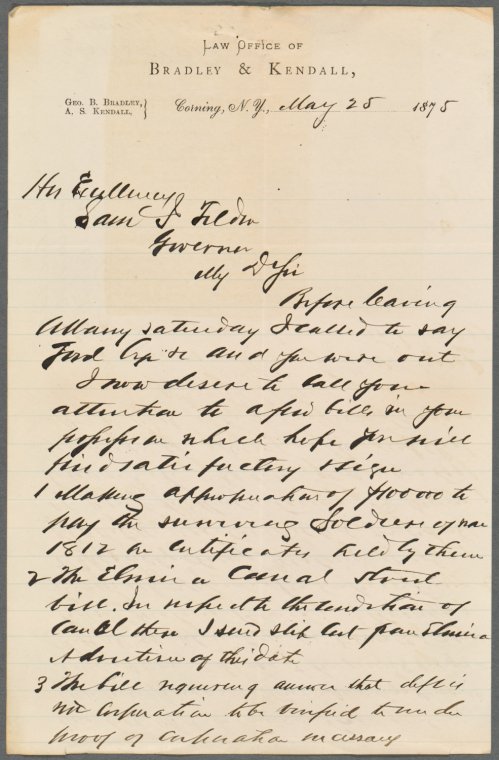 LAW OFFICE OF
BRADLEY & KENDALL,
GEO. B. BRADLEY,
A. S. KENDALL.
Corning, N. Y., May 25 1875
His Excellency
Sam J Tilden
Governor
My D Sir
Before leaving
Albany saturday I called to say
Good bye & and you were out
I now desire to call your
attention to a few bills in your
possession which hope you will
find satisfactory & sign
1 Making appropriation of $100000 to
pay the surviving Soldiers of war
1812 on certificates held by them
2 The Elmira Canal street
bill. In respect to the condition of
Canal there I send slip cut from Elmira
Advertiser of this date
3 The bill requiring answer that deft is
not Corporation to be verified to render
proof of corporation necessary